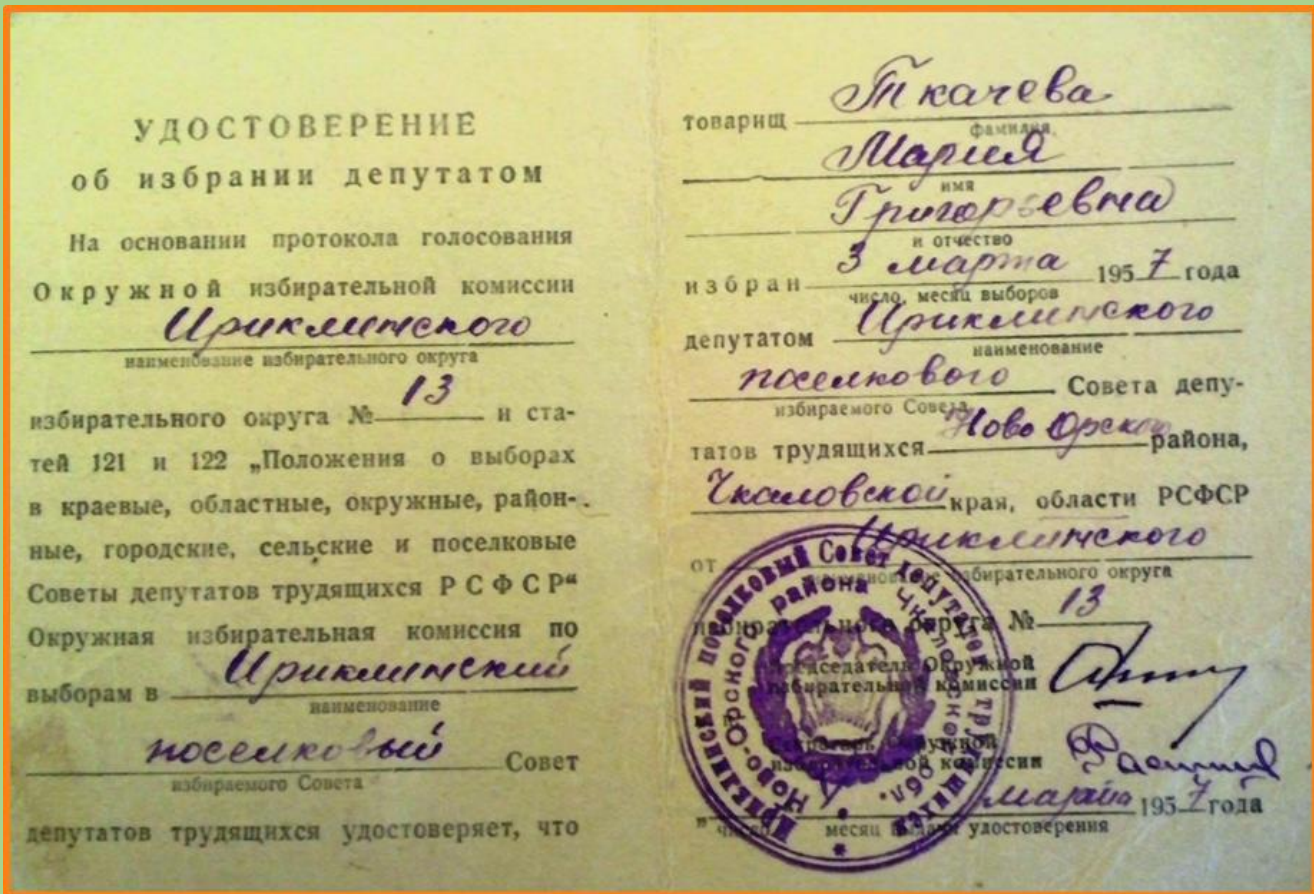 УДОСТОВЕРЕНИЕ
об избрании депутатом
На основании протокола голосования
Окружной избирательной комиссии
Ириклинского
наименование избирательного округа
избирательного округа № 13 и ста-
тей 121 и 122 „Положения о выборах
в краевые, областные, окружные, район-
ные, городские, сельские и поселковые
Советы депутатов трудящихся РСФСР“
Окружная избирательная комиссия по
выборам в Ириклинский
наименование
поселковый Совет
избираемого Совета
депутатов трудящихся удостоверяет, что
товарищ Ткачева
фамилия
Мария
имя
Григорьевна
и отчество
избран 3 марта 1957 года
число, месяц выборов
депутатом Ириклинского
наименование
поселкового Совета депу-
избираемого Совета
татов трудящихся Ново Орского района,
Чкаловской края, области РСФСР
от Ириклинского
наименование избирательного округа
избирательного округа № 13
Председатель Окружной
избирательной комиссии
Секретарь Окружной
избирательной комиссии
" марта 1957 года
число месяц выдачи удостоверения
Ириклинский поселковый Совет депутатов трудящихся
Ново-Орского района Чкаловской обл.